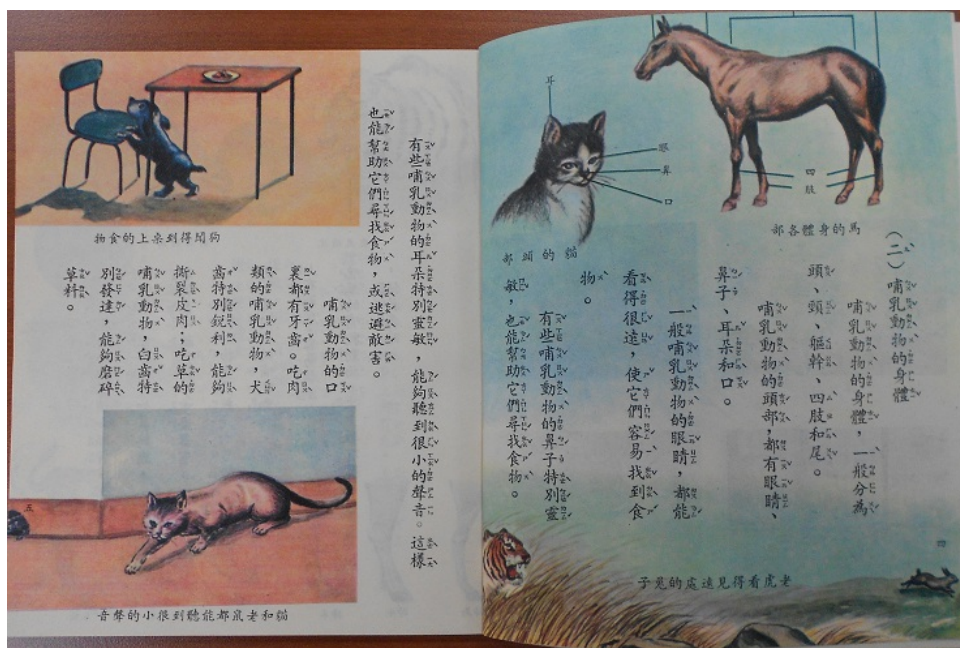 耳
眼
鼻
口
四肢
馬的身體各部
貓的頭部
(二)哺乳動物的身體
哺乳動物的身體,一般分為
頭、頸、軀幹、四肢和尾。
哺乳動物的頭部,都有眼睛、
鼻子、耳朵和口。
一般哺乳動物的眼睛,都能
看得很遠,使它們容易找到食
物。
有些哺乳動物的鼻子特別靈
敏,也能幫助它們尋找食物。
老虎看得見遠處的兔子
四
有些哺乳動物的耳朵特別靈敏,能夠聽到很小的聲音。這樣
也能幫助它們尋找食物,或逃避敵害。
狗聞得到桌上的食物
哺乳動物的口
裏都有牙齒。吃肉
類的哺乳動物,犬
齒特別銳利,能夠
撕裂皮肉;吃草的
哺乳動物,臼齒特
別發達,能夠磨碎
草料。
貓和老鼠都能聽到很小的聲音
五